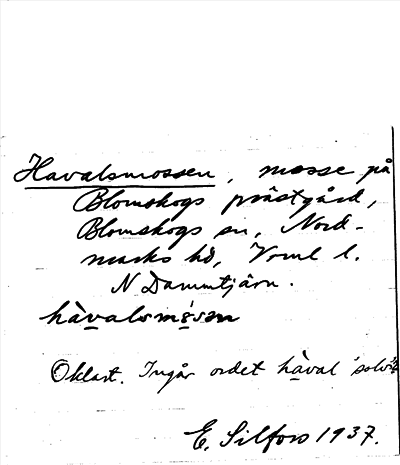 Havalsmossen, mosse på
Blomskogs prästgård,
Blomskogs sn, Nord-
marks hd, Vrml l.
N Dammtjärn.
hàvalsmɵ́sen
Oklart. Ingår ordet hàval
E. Silfors 1937.